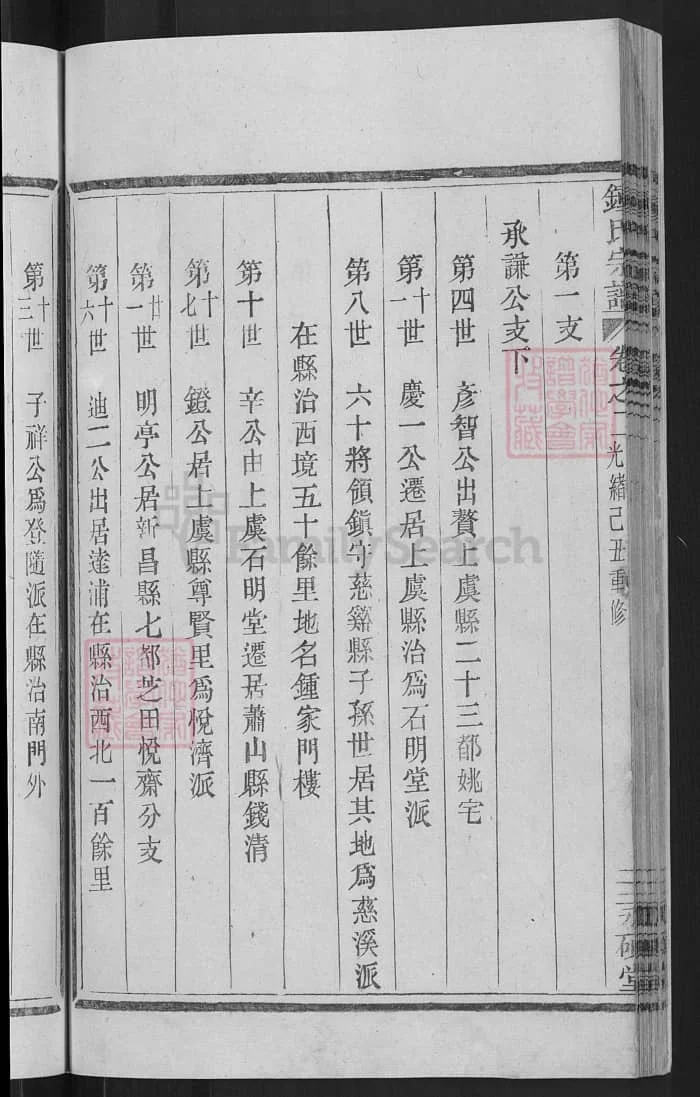 鍾氏宗譜 卷之一 光緒己丑重修
第一支
承謙公支下
第四世 彥智公出贅上虞縣二十三都姚宅
第十一世 慶一公遷居上虞縣治爲石明堂派
第八世 六十將領鎭守慈谿縣子孫世居其地爲慈溪派
在縣治西境五十餘里地名鍾家門樓
第十世 辛公由上虞石明堂遷居蕭山縣錢清
第十七世 鐙公居上虞縣尊賢里爲悅濟派
第廿一世 明亭公居新昌縣七都芝田悅齋分支
第十六世 迪二公出居達浦在縣治西北一百餘里
第十三世 子祥公爲登隨派在縣治南門外
FamilySearch